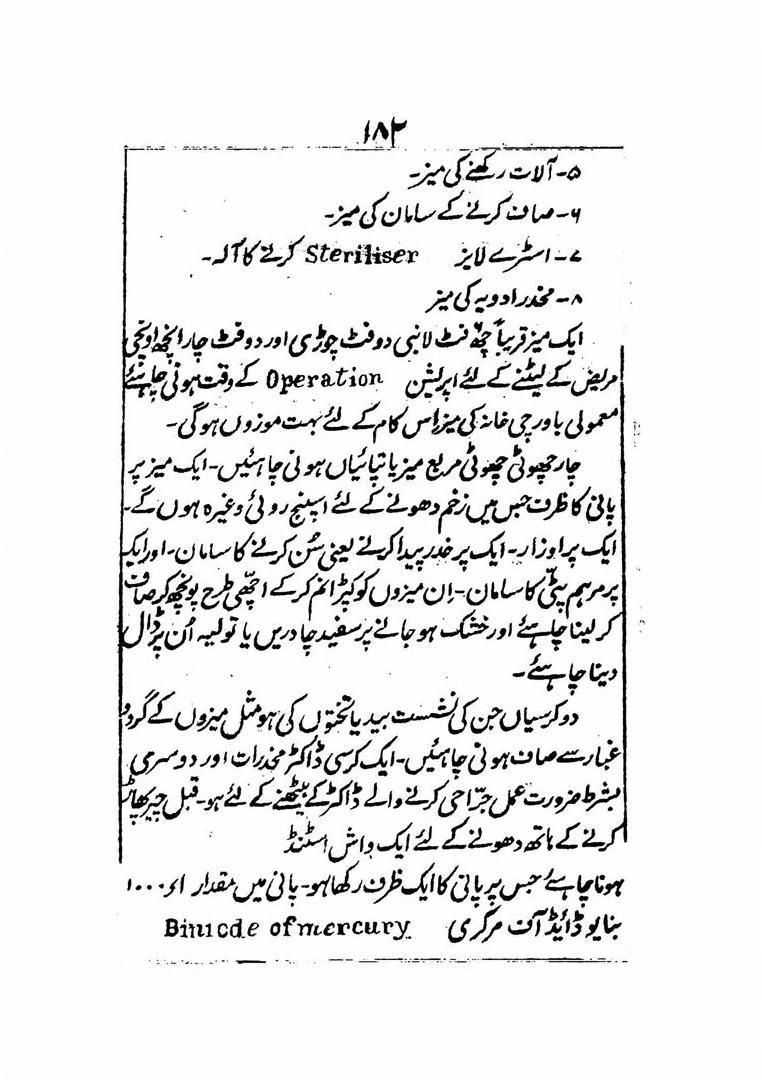 ۱۸۲
۵- آلات رکھنے کی میز-
۶- صاف کرنے کے سامان کی میز-
۷- اسٹرے لایز Steriliser کرنے کا آلہ-
۸- مخدر ادویہ کی میز
ایک میز قریباً چھ فٹ لانبی دو فٹ چوڑی اور دو فٹ چار انچھ اونچی
مریض کے لیٹنے کے لئے اپریشن Operation کے وقت ہونی چاہئے
معمولی باورچی خانہ کی میز اس کام کے لئے بہت موزوں ہوگی-
چار چھوٹی چھوٹی مربع میز یا تپائیاں ہونی چاہئیں- ایک میز پر
پانی کا ظرف جس میں زخم دھونے کے لئے اسپنج روئی وغیرہ ہوں گے-
ایک پر اوزار- ایک پر خدر پیدا کرنے یعنی سُن کرنے کا سامان- اور ایک
پر مرہم پٹی کا سامان- اِن میزوں کو کپڑا نم کر کے اچھی طرح پونچھ کر صاف
کر لینا چاہئے اور خشک ہو جانے پر سفید چادریں یا تولیہ اُن پر ڈال
دینا چاہئے-
دو کرسیاں جن کی نشست بید یا تختوں کی ہو مثل میزوں کے گرد و
غبار سے صاف ہونی چاہئیں- ایک کرسی ڈاکٹر مخدرات اور دوسری
بشرط ضرورت عمل جرّاحی کرنے والے ڈاکٹر کے بیٹھنے کے لئے ہو- قبل چیر پھاڑ
کرنے کے ہاتھ دھونے کے لئے ایک واش اسٹنڈ
ہونا چاہئے جس پر پانی کا ایک ظرف رکھا ہو- پانی میں مقدار
بنایو ڈائیڈ آف مرکری Biniode of mercury